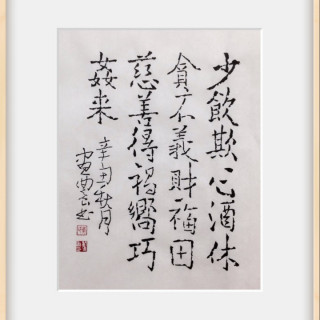 少飲欺心酒休
貪不義財福因
慈善得禍嚮巧
姦来
辛丑秋月